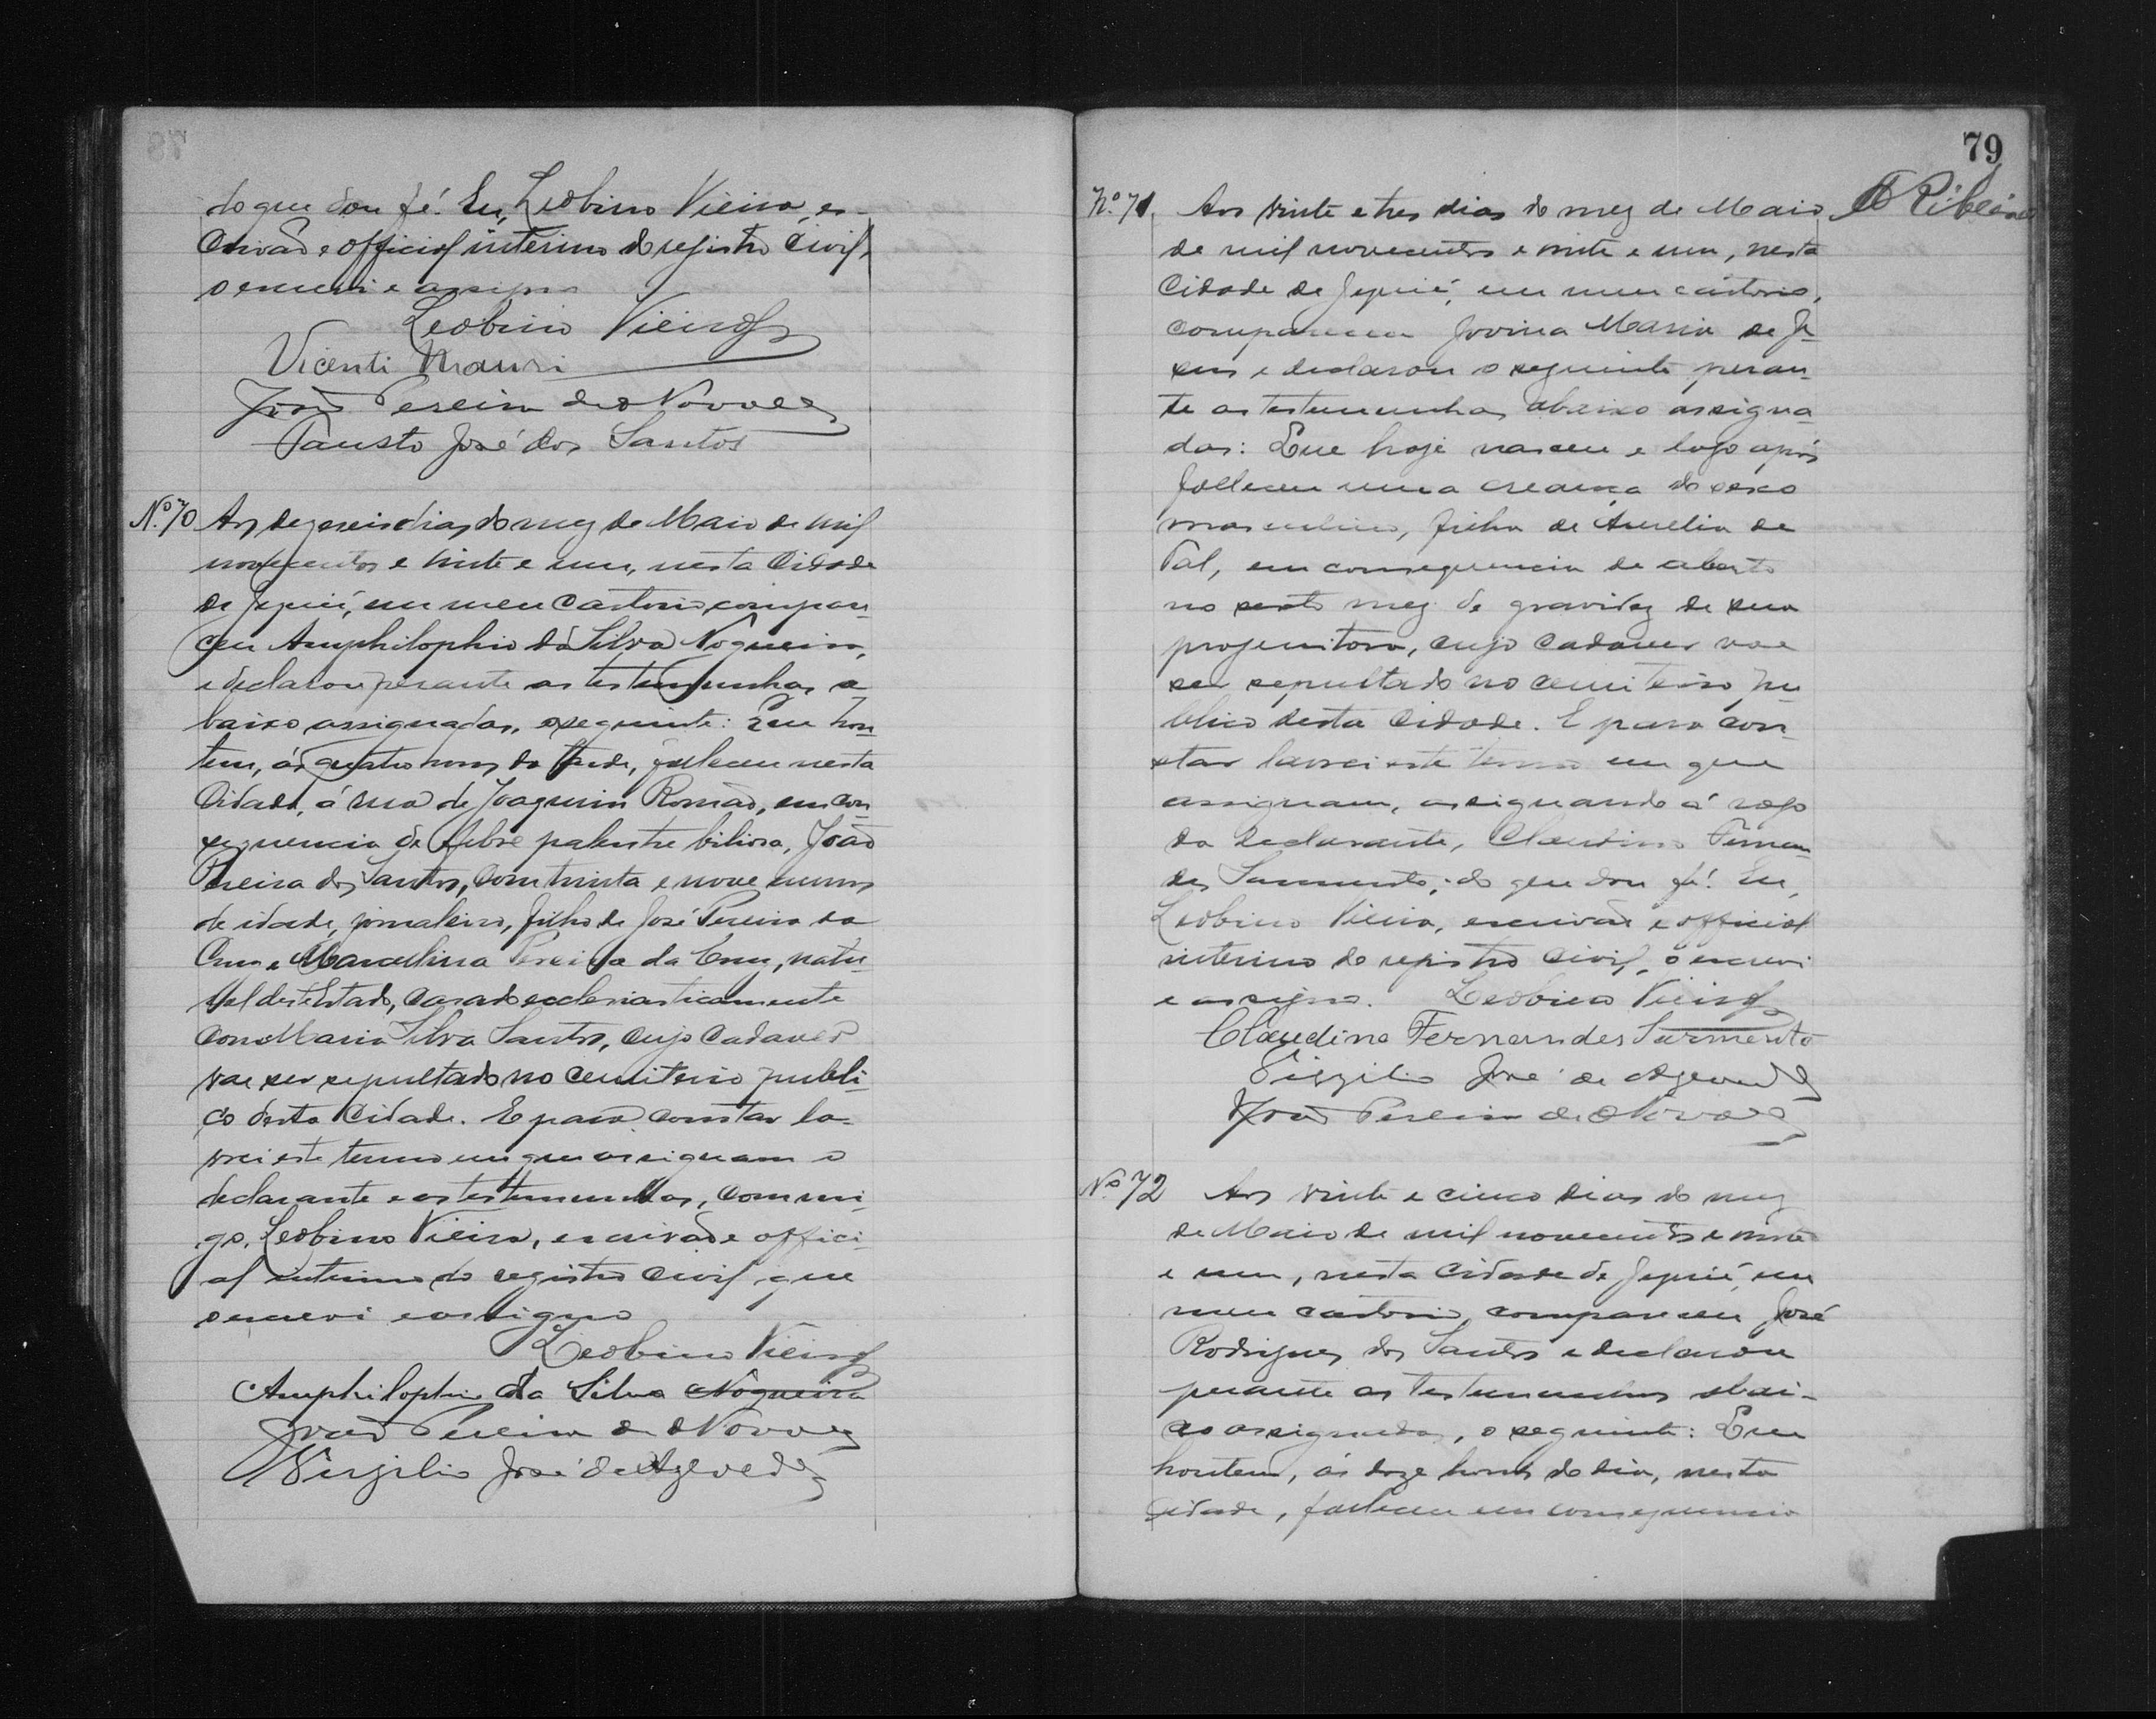 do que dou fé. Eu, Leobino Vieira, es-
crivão e official interino do registro civil,
o escrevi e assigno
Leobino Vieira
Vicenti Mauri
João Pereira de Novaes
Fausto José dos Santos
Nº 70 Aos dezeseis dias do mez de Maio de mil
novecentos e vinte e um, nesta Cidade
de Jequié, em meu Cartorio compare-
ceu Amphilophio da Silva Nogueira,
e declarou perante as testemunhas a-
baixo assignadas, o seguinte: Que hon-
tem, ás quatro horas da tarde, falleceu nesta
Cidade, á rua de Joaquim Romão, em con-
sequencia de febre palustre biliosa, João
Pereira dos Santos, com trinta e nove annos
de idade, jornaleiro, filho de José Pereira da
Cruz e Marcellina Pereira da Cruz, natu-
ral deste Estado, casado ecclesiasticamente
com Maria Silva Santos, cujo cadaver
vae ser sepultado no cemiterio publi-
co desta Cidade. E para constar la-
vrei este termo em que assignam o
declarante e as testemunhas, commi-
go, Leobino Vieira, escrivão e offici-
al interino do registro civil que
o escrevi e assigno
Leobino Vieira
Amphilophio da Silva Nogueira
João Pereira de Novaes
Virgilio José de Azevedo
79
Ribeiro
Nº 71. Aos vinte e tres dias do mez de Maio
de mil novecentos e vinte e um, nesta
Cidade de Jequié, em meu cartorio,
compareceu Jovina Maria de Je-
sus e declarou o seguinte peran-
te as testemunhas abaixo assigna-
das: Que hoje nasceu e logo após
falleceu uma creança do sexo
masculino, filha de Aurelia de
Tal, em consequencia de aborto
no sexto mez de gravidez de sua
progenitora, cujo cadaver vae
ser sepultado no cemiterio pu-
blico desta Cidade. E para con-
star lavrei este termo em que
assignam, assignando á rogo
da declarante, Claudino Fernan-
des Sarmento; do que dou fé. Eu,
Leobino Vieira, escrivão e official
interino do registro civil, o escrevi
e assigno. Leobino Vieira
Claudino Fernandes Sarmento
Virgilio José de Azevedo
João Pereira de Novaes
Nº 72 Aos vinte e cinco dias do mez
de Maio de mil novecentos e vinte
e um, nesta Cidade de Jequié, em
meu cartorio, compareceu José
Rodrigues dos Santos e declarou
perante as testemunhas abai-
xo assignadas, o seguinte: Que
hontem, ás doze horas do dia, nesta
Cidade, falleceu em consequencia